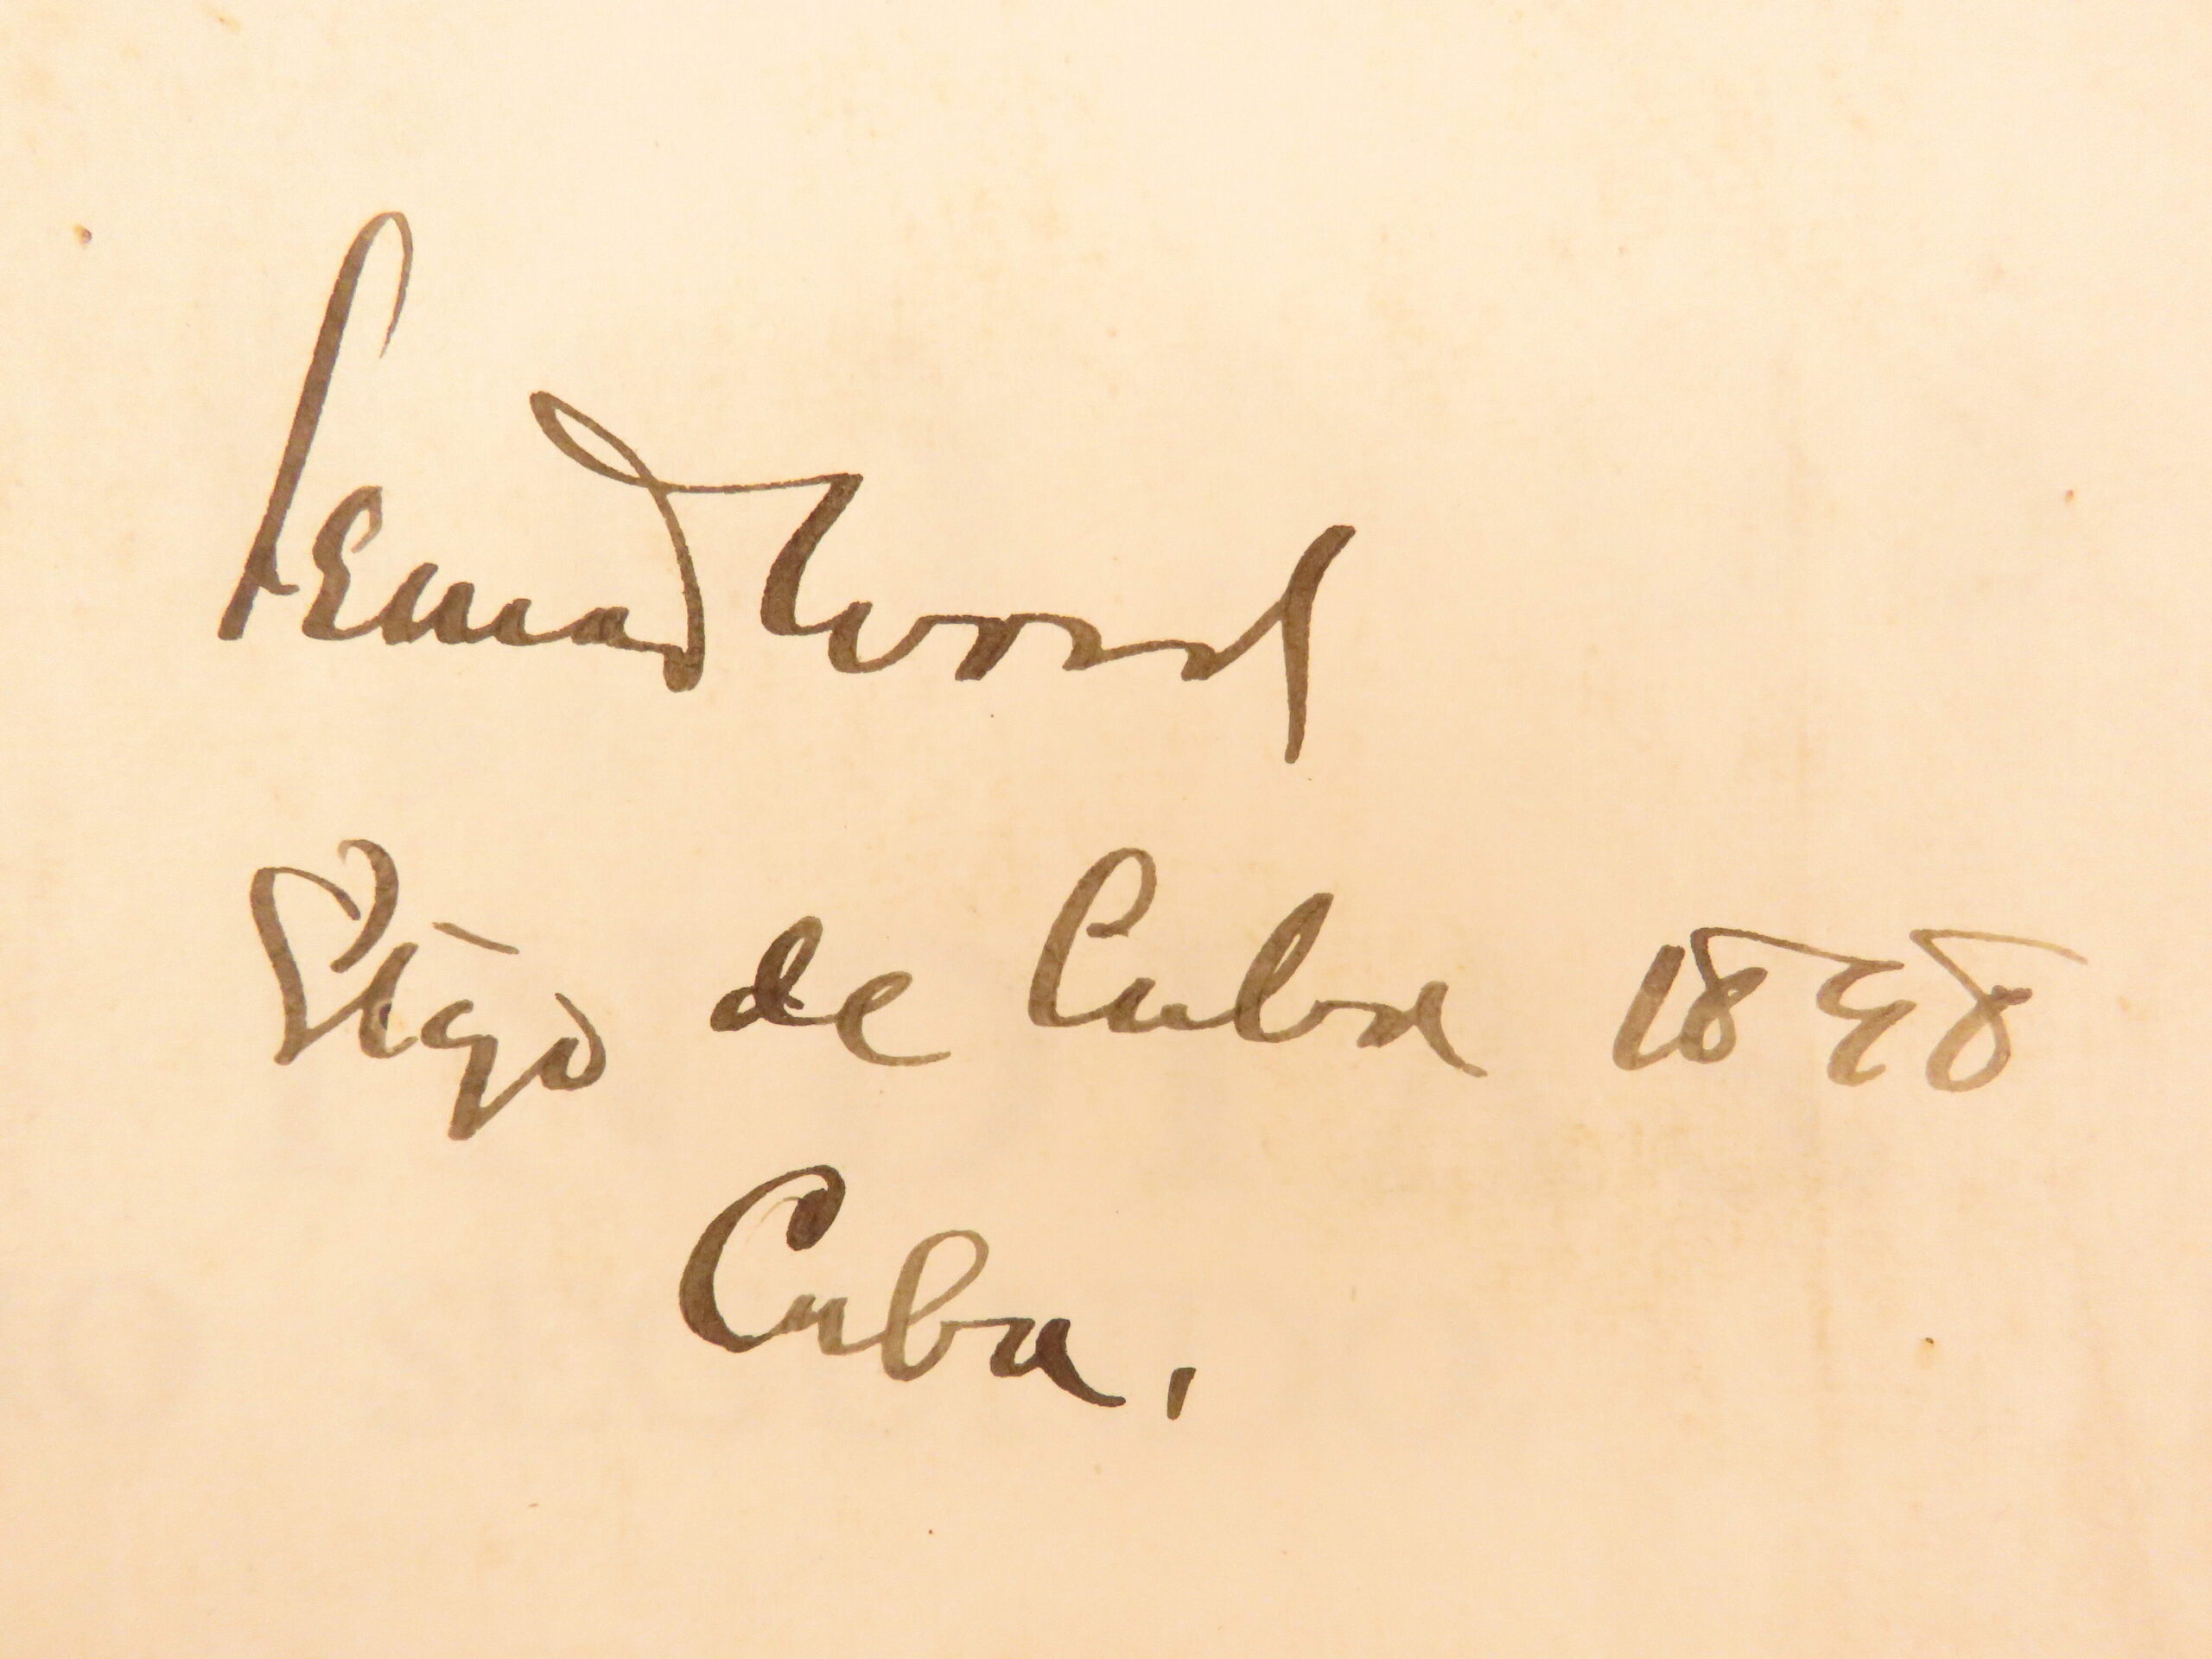 Leonard Wood
Stgo de Cuba 1898
Cuba.